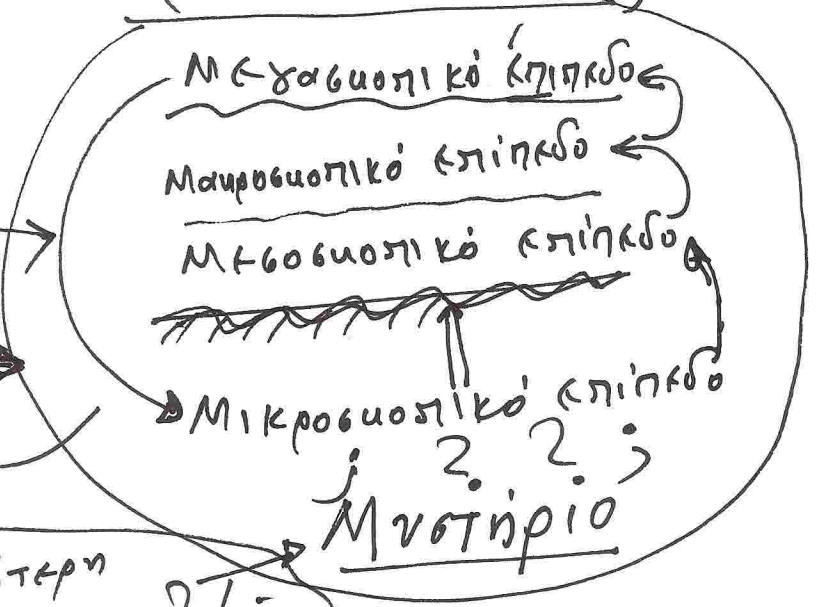 Μεγασκοπικό έπιπεδο
Μακροσκοπικό επίπεδο
Μεσοσκοπικό επίπεδο
Μικροσκοπικό επίπεδο
; ? ? ;
Μυστήριο
τερη